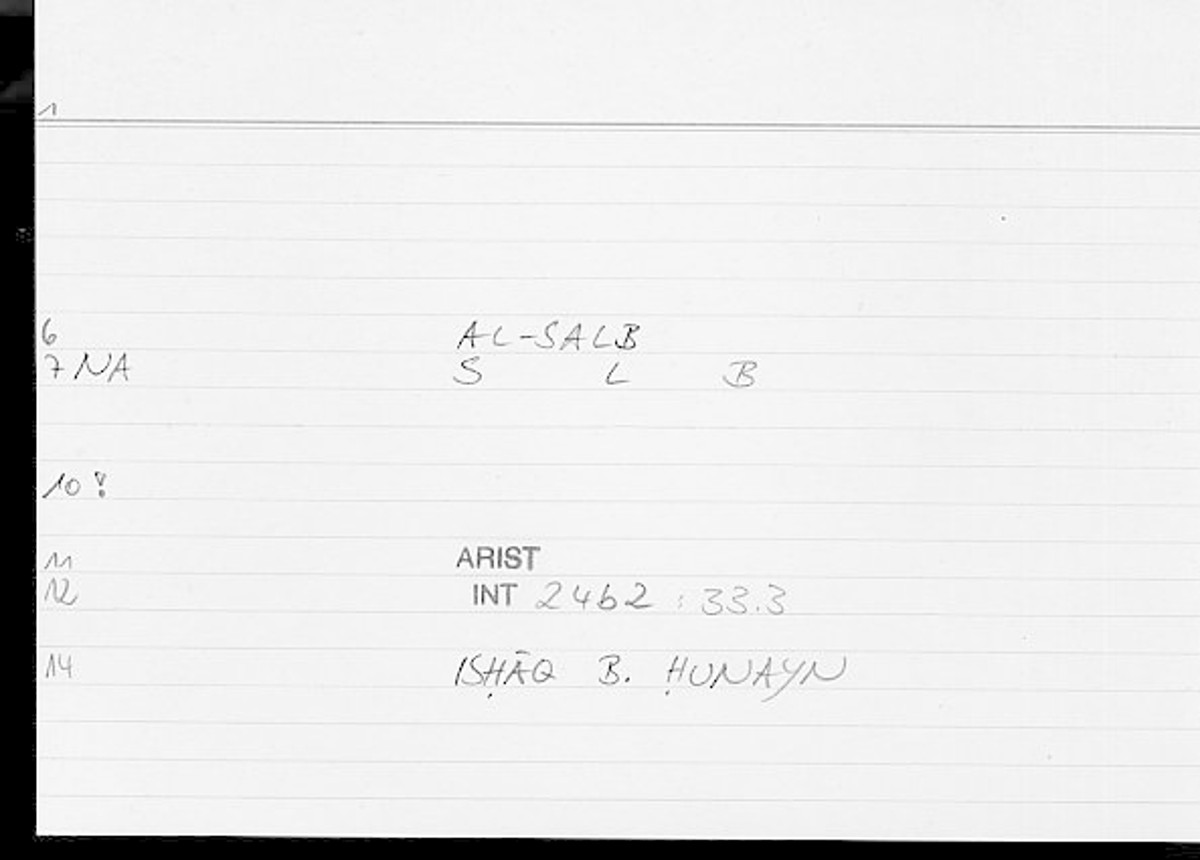 1
6 AL-SALB
7 NA S L B
10 !
11 ARIST
12 INT 24b2 : 33.3
14 ISḤĀQ B. ḤUNAYN